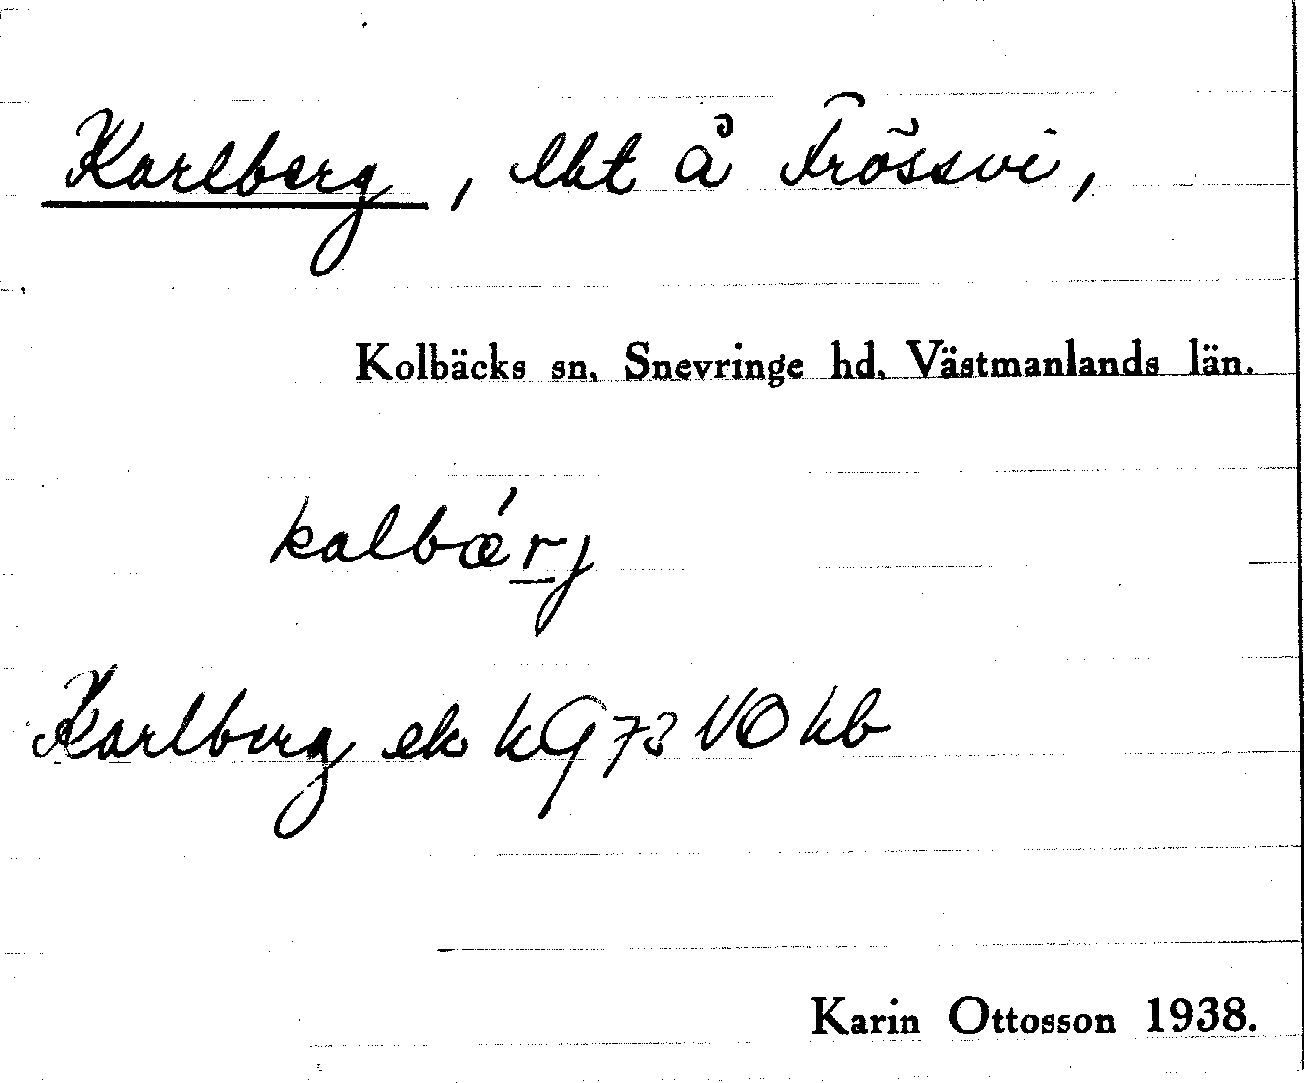 Karlberg, lht å Frössvi,
Kolbäcks sn, Snevringe hd, Västmanlands län.
kalbǽrj
Karlberg ek kG 73 NO kb
Karin Ottosson 1938.